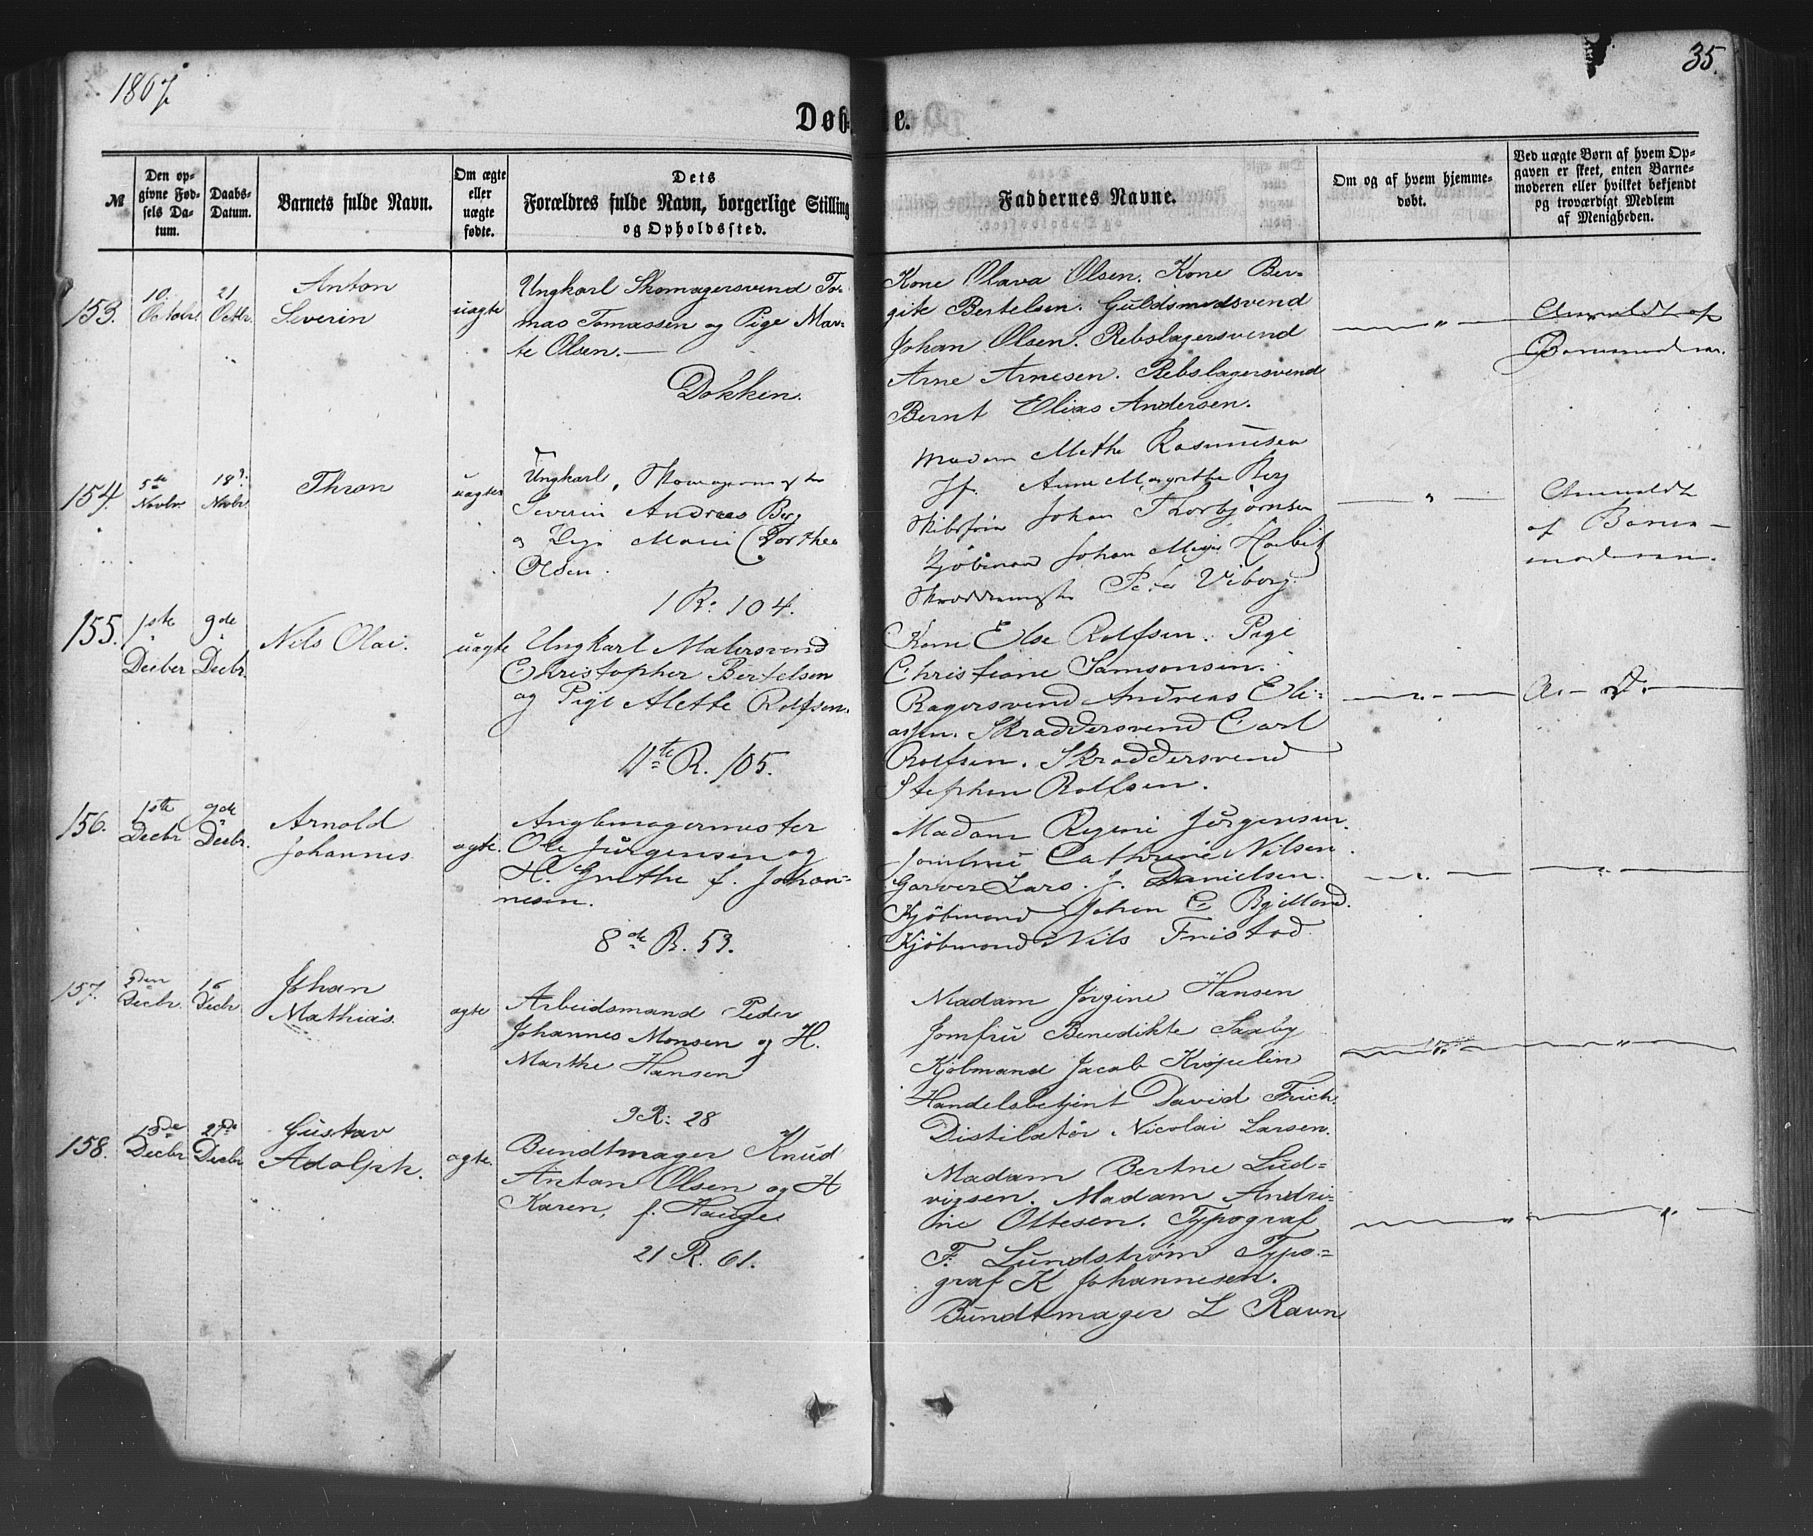 1867
35.
Døbte.
№
Den opgivne Fødsels Datum.
Daabs-Datum.
Barnets fulde Navn.
Om ægte eller uægte fødte.
Dets Forældres fulde Navn, borgerlige Stilling og Opholdssted.
Faddernes Navne.
Om og af hvem hjemmedøbt.
Ved uægte Børn af hvem Opgaven er skeet, enten Barnemoderen eller hvilket bekjendt og troværdigt Medlem af Menigheden.
153.
10. Octobr.
21 Octbr.
Anton
Severin
uægte
Ungkarl Skomagersvend To-
mas Tomassen og Pige Mar-
te Olsen.
Dokken.
Kone Olava Olsen. Kone Ber-
gite Bertelsen. Guldsmedsvend
Johan Olsen. Rebslagersvend
Arne Arnesen. Rebslagersvend
Bernt Elias Andersen.
Anmeldt af
Barnemoderen.
154.
5te Novbr.
18d. Novbr.
Thron
uægte
Ungkarl,
Severin Andreas Berg
og Pige Marie Dorthea
Olsen.
1 R: 104.
Madam Methe Rasmusen
Jf. Anne Margrethe Berg
Johan Thorbjørnsen
Kjøbmand Johan
Peter Viborg.
Anmeldt
af Barne-
moderen.
155.
1ste Decber
9de Decbr.
Nils Olai.
uægte
Ungkarl Malersvend
Christopher Bertelsen
og Pige Alette Rolfsen.
11te R. 105.
Kone Else Rolfsen. Pige
Christiane Samsonsen.
Bagersvend Andreas Eli-
assen. Skraddersvend Carl
Rolfsen. Skraddersvend
Stephen Rolfsen.
A. D.
156.
1ste Decbr
9de Decbr.
Arnold
Johannes
ægte.
Ole Jürgensen og
H. Grethe f. Johan-
nesen.
8de R. 53.
Madam Regine Jürgensen.
Jomfrue Cathrine Nilsen.
Garver Lars J. Danielsen.
Kjöbmand Johan C
Kjöbmand Nils Fristad
157.
Decbr.
16 Decbr
Johan
Mathias.
ægte
Arbeidsmand Peder
Johannes Monsen og H.
Marthe Hansen
9 R: 28
Madam Jørgine Hansen
Jomfru Benedikte Saaby
Kjöbmand Jacob Krøpelin
Handelsbetjent David Frich.
Distilatør Nicolai Larsen.
158.
13de Decbr
27de Decbr
Gustav
Adolph.
ægte.
Bundtmager Knud
Anton Olsen og H
Karen, f. Hauge
21 R. 61.
Madam Bertne Lud-
vigsen. Madam Andri-
ne Ottesen. Typograf
F. Lundstrøm Typo-
graf K Johannesen.
Bundtmager L Ravn